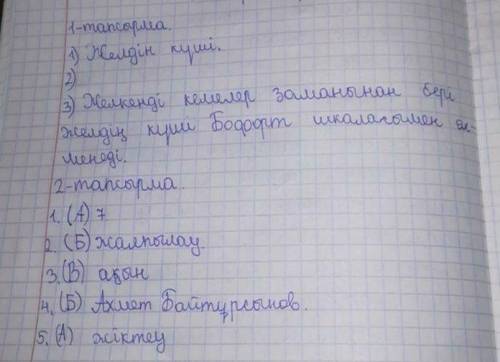 1-тапсырма.
1) Желдің күші.
2)
3) Желкенді кемелер заманынан бері
желдің күші Бофорт шкаласымен өл-
менеді.
2-тапсырма.
1. (А) 7
2. (Б) жалпылау
3. (В) ақын
4. (Б) Ахмет Байтұрсынов.
5. (А) жіктеу